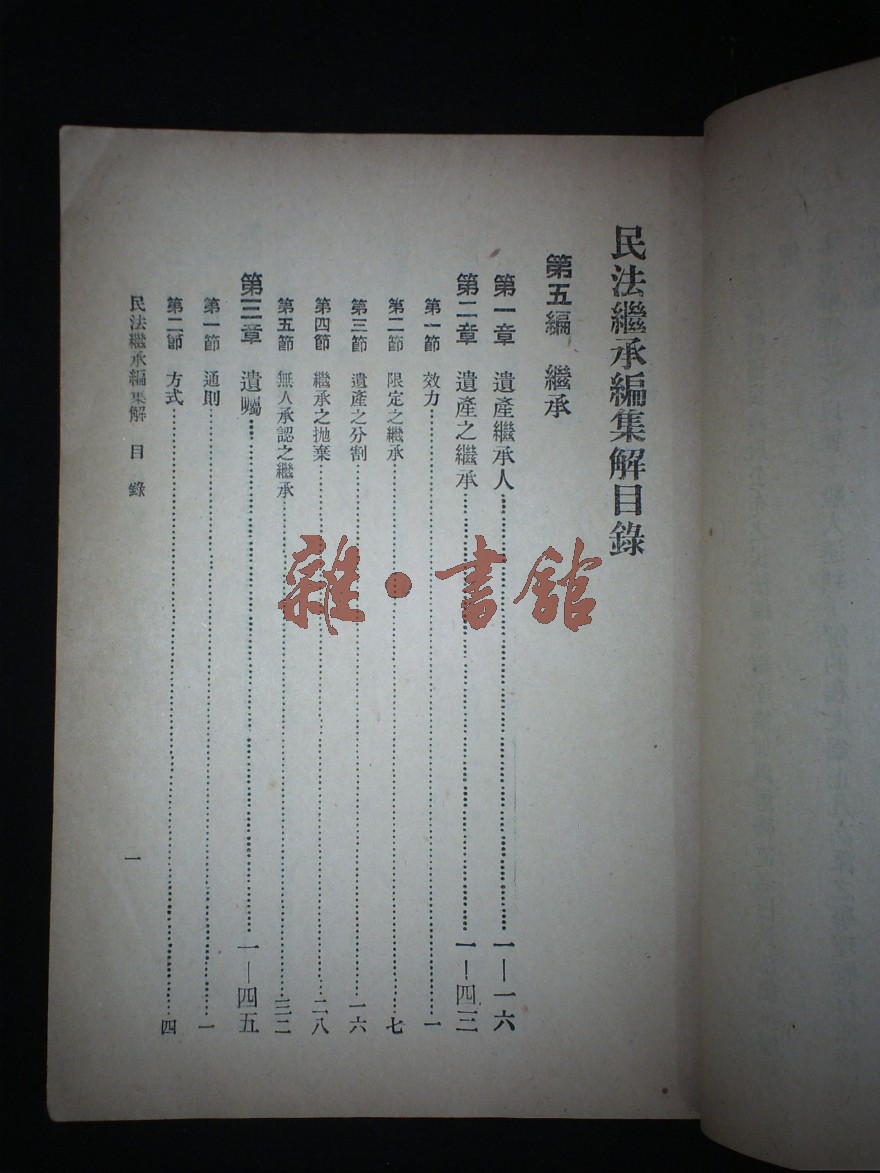 民法繼承編集解目錄
第五編 繼承
第一章 遺產繼承人……一—一六
第二章 遺產之繼承……一—四三
第一節 效力……一
第二節 限定之繼承……七
第三節 遺產之分割……一六
第四節 繼承之拋棄……二八
第五節 無人承認之繼承……三二
第三章 遺囑……一—四五
第一節 通則……一
第二節 方式……四
民法繼承編集解 目錄 一
雜·書館